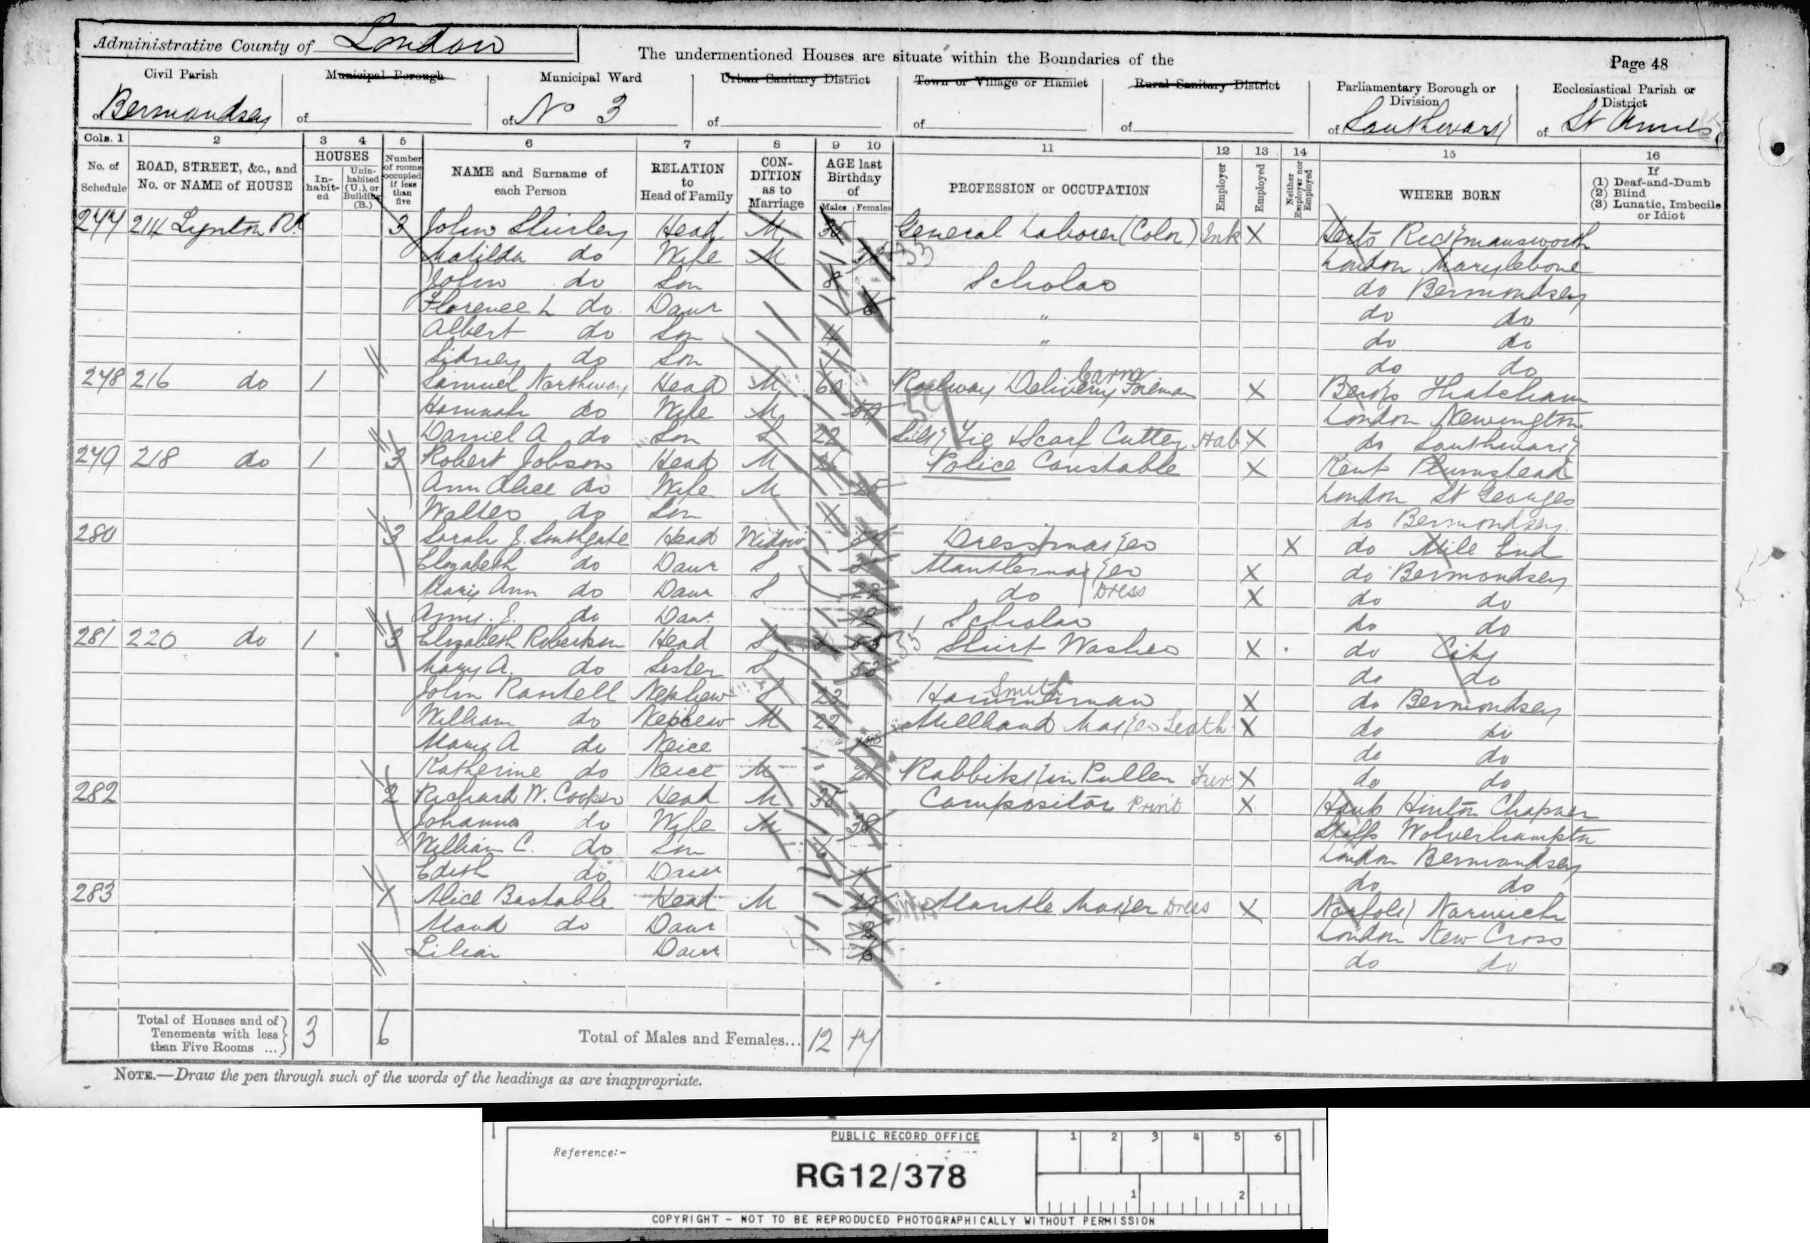 Administrative County of London
The undermentioned Houses are situate within the Boundaries of the
Page 48
Civil Parish
Municipal Borough
Municipal Ward
Urban Sanitary District
Town or Village or Hamlet
Rural Sanitary District
Parliamentary Borough or Division
Ecclesiastical Parish or District
of Bermondsey
of
of No 3
of
of
of
of Southwark
of St Annes
Cols. 1 2 3 4 5 6 7 8 9 10 11 12 13 14 15 16
No. of Schedule
ROAD, STREET, &c., and No. or NAME of HOUSE
HOUSES
Inhabited
Uninhabited (U.), or Building (B.)
Number of rooms occupied if less than five
NAME and Surname of each Person
RELATION to Head of Family
CONDITION as to Marriage
AGE last Birthday of
Males Females
PROFESSION or OCCUPATION
Employer
Employed
Neither Employer nor Employed
WHERE BORN
If
(1) Deaf-and-Dumb
(2) Blind
(3) Lunatic, Imbecile or Idiot
214 Lynton Rd 3 John Shirley Head M General Laborer (Color) Ink X Herts Rickmansworth
Matilda do Wife M London Marylebone
John do Son 8 Scholar do Bermondsey
Florence L do Daur 6 " do do
Albert do Son 4 " do do
Sidney do Son do do
248 216 do 1 Samuel Northway Head M 60 Railway Delivery Foreman X Berks Thatcham
Hannah do Wife M London Newington
Daniel A do Son S 22 Silk Tie & Scarf Cutter Hab X do Southwark
249 218 do 1 3 Robert Jobson Head M Police Constable X Kent Plumstead
Ann Alice do Wife M London St Georges
Walter do Son do Bermondsey
280 3 Sarah J. Southgate Head Widow Dressmaker X do Mile End
Elizabeth do Daur S Mantlemaker X do Bermondsey
Mary Ann do Daur S 22 do Dress X do do
Amy J. do Daur Scholar do do
281 220 do 1 3 Elizabeth Robertson Head S Shirt Washer X do City
Mary A. do Sister S do do
John Rantell Nephew S 22 Smith Hammerman X do Bermondsey
William do Nephew M 22 Millboard Maker Leath X do do
Mary A do Neice do do
Katherine do Neice M Rabbitskin Puller Fur X do do
282 2 Richard W. Cooper Head M 35 Compositor Print X Hants Hinton
Johanna do Wife M 38 Staffs Wolverhampton
William C. do Son 6 London Bermondsey
Edith do Daur do do
283 Alice Bastable Head M Mantle Maker Dress X Norfolk Norwich
Maud do Daur London New Cross
Lilian Daur 6 do do
Total of Houses and of Tenements with less than Five Rooms ... 3 6
Total of Males and Females... 12 17
NOTE.—Draw the pen through such of the words of the headings as are inappropriate.
PUBLIC RECORD OFFICE
Reference:-
RG12/378
1 2 3 4 5 6
1 2
COPYRIGHT - NOT TO BE REPRODUCED PHOTOGRAPHICALLY WITHOUT PERMISSION